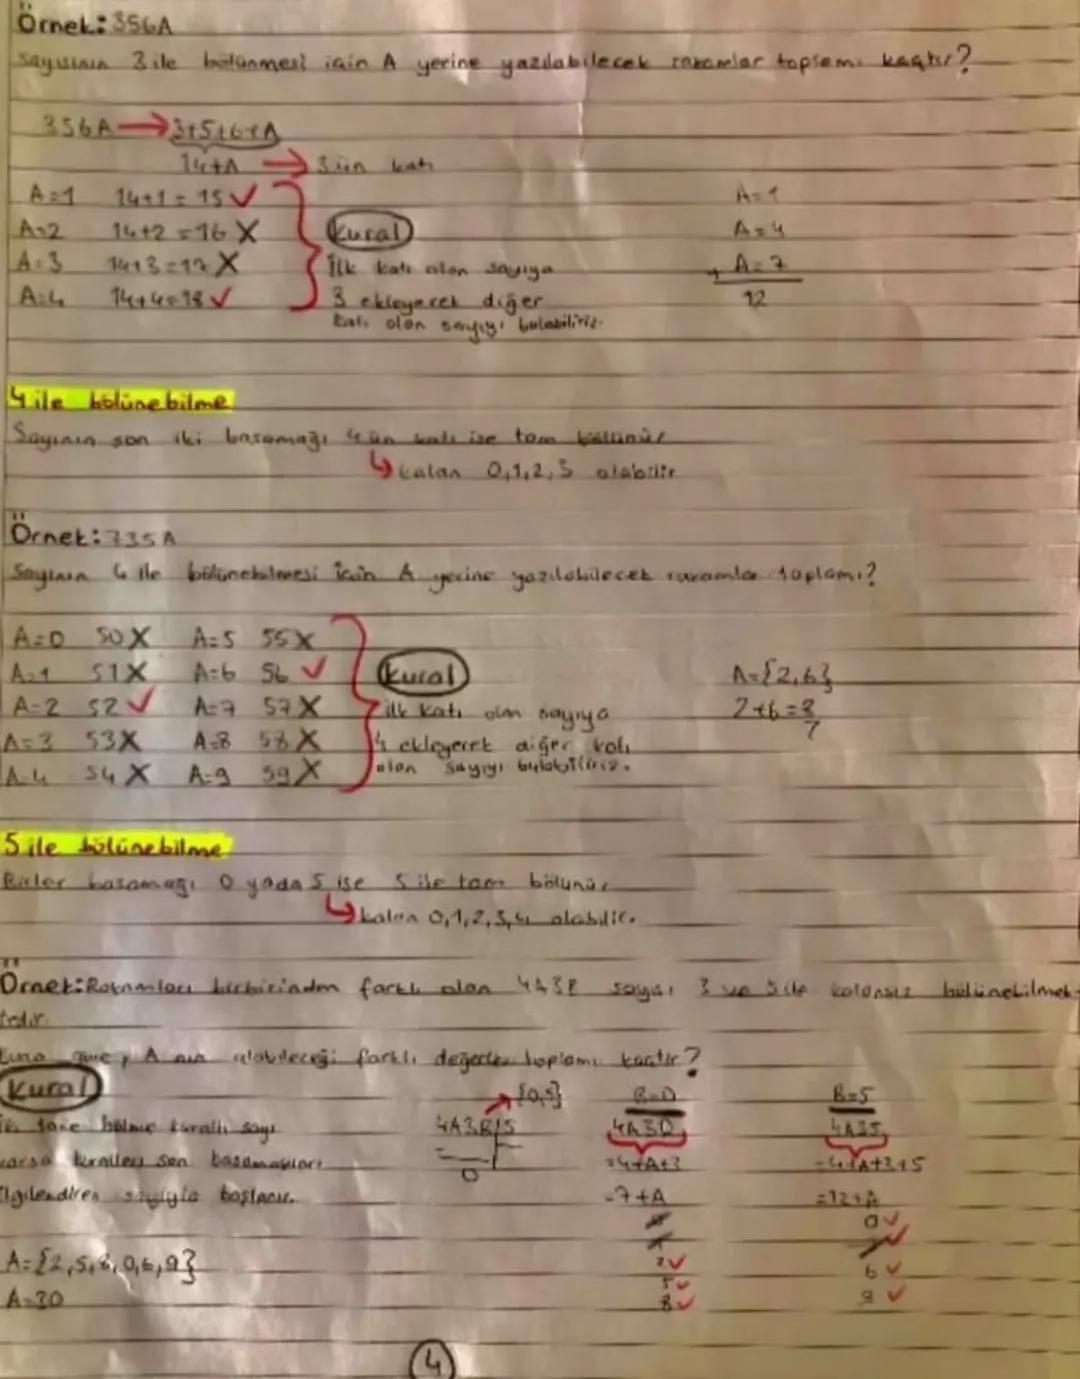 Örnek: 356A
sayısının 3 ile bölünmesi için A yerine yazılabilecek rakamlar toplamı kaçtır?
356A → 3+5+6+A
14+A → 3 ün katı
A=1 14+1=15 ✓
A=2 14+2=16 X
A=3 14+3=17 X
A=4 14+4=18 ✓
Kural
İlk katı olan sayıya
3 ekleyerek diğer
katı olan sayıyı bulabiliriz.
A=1
A=4
+ A=7
12
4 ile bölünebilme
Sayının son iki basamağı 4 ün katı ise tam bölünür
↳ kalan 0,1,2,3 olabilir
Örnek: 735A
Sayının 4 ile bölünebilmesi için A yerine yazılabilecek rakamlar toplamı?
A=0 50 X A=5 55 X
A=1 51 X A=6 56 ✓
A=2 52 ✓ A=7 57 X
A=3 53 X A=8 58 X
A=4 54 X A=9 59 X
Kural
ilk katı olan sayıya
4 ekleyerek diğer katı
olan sayıyı bulabiliriz.
A={2,6}
2+6=8
5 ile bölünebilme
Birler basamağı 0 yada 5 ise 5 ile tam bölünür
↳ kalan 0,1,2,3,4 olabilir.
Örnek: Rakamları birbirinden farklı olan 4A3B sayısı 3 ve 5 ile kalansız bölünebilmek-
tedir.
Buna göre, A nın alabileceği farklı değerler toplamı kaçtır?
Kural
İki tane bölme kurallı sayı
varsa kuralları son basamakları
ilgilendiren sayıyla başlarız.
A={2,5,8,0,6,9}
A=30
{0,5}
4A3B 5
0
B=0
4A30
=4+A+3
=7+A
2 ✓
5 ✓
8 ✓
B=5
4A35
=4+A+3+5
=12+A
0 ✓
6 ✓
9 ✓
4